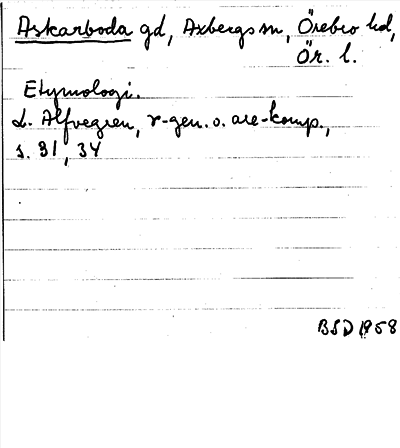 Askarboda gd, Axbergs sn, Örebro hd,
Ör. l.
Etymologi.
L. Alfvegren, r-gen. o. are-komp.,
s. 31, 34
BSD 1958